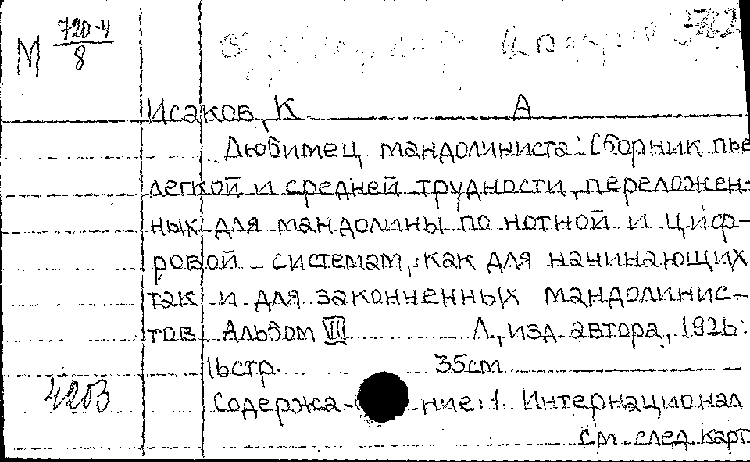 М 720-4
8
Исаков, К А
Любимец мандолиниста: Сборник пье
легкой и средней трудности, переложен-
ных для мандолины по нотной и циф-
ровой системам, как для начинающих
так и для законченных мандолинис-
тов Альбом VII Л., изд. автора, 1926.
16стр. 35см
4203
Содержа- ние: 1. Интернационал
См. след. карт.